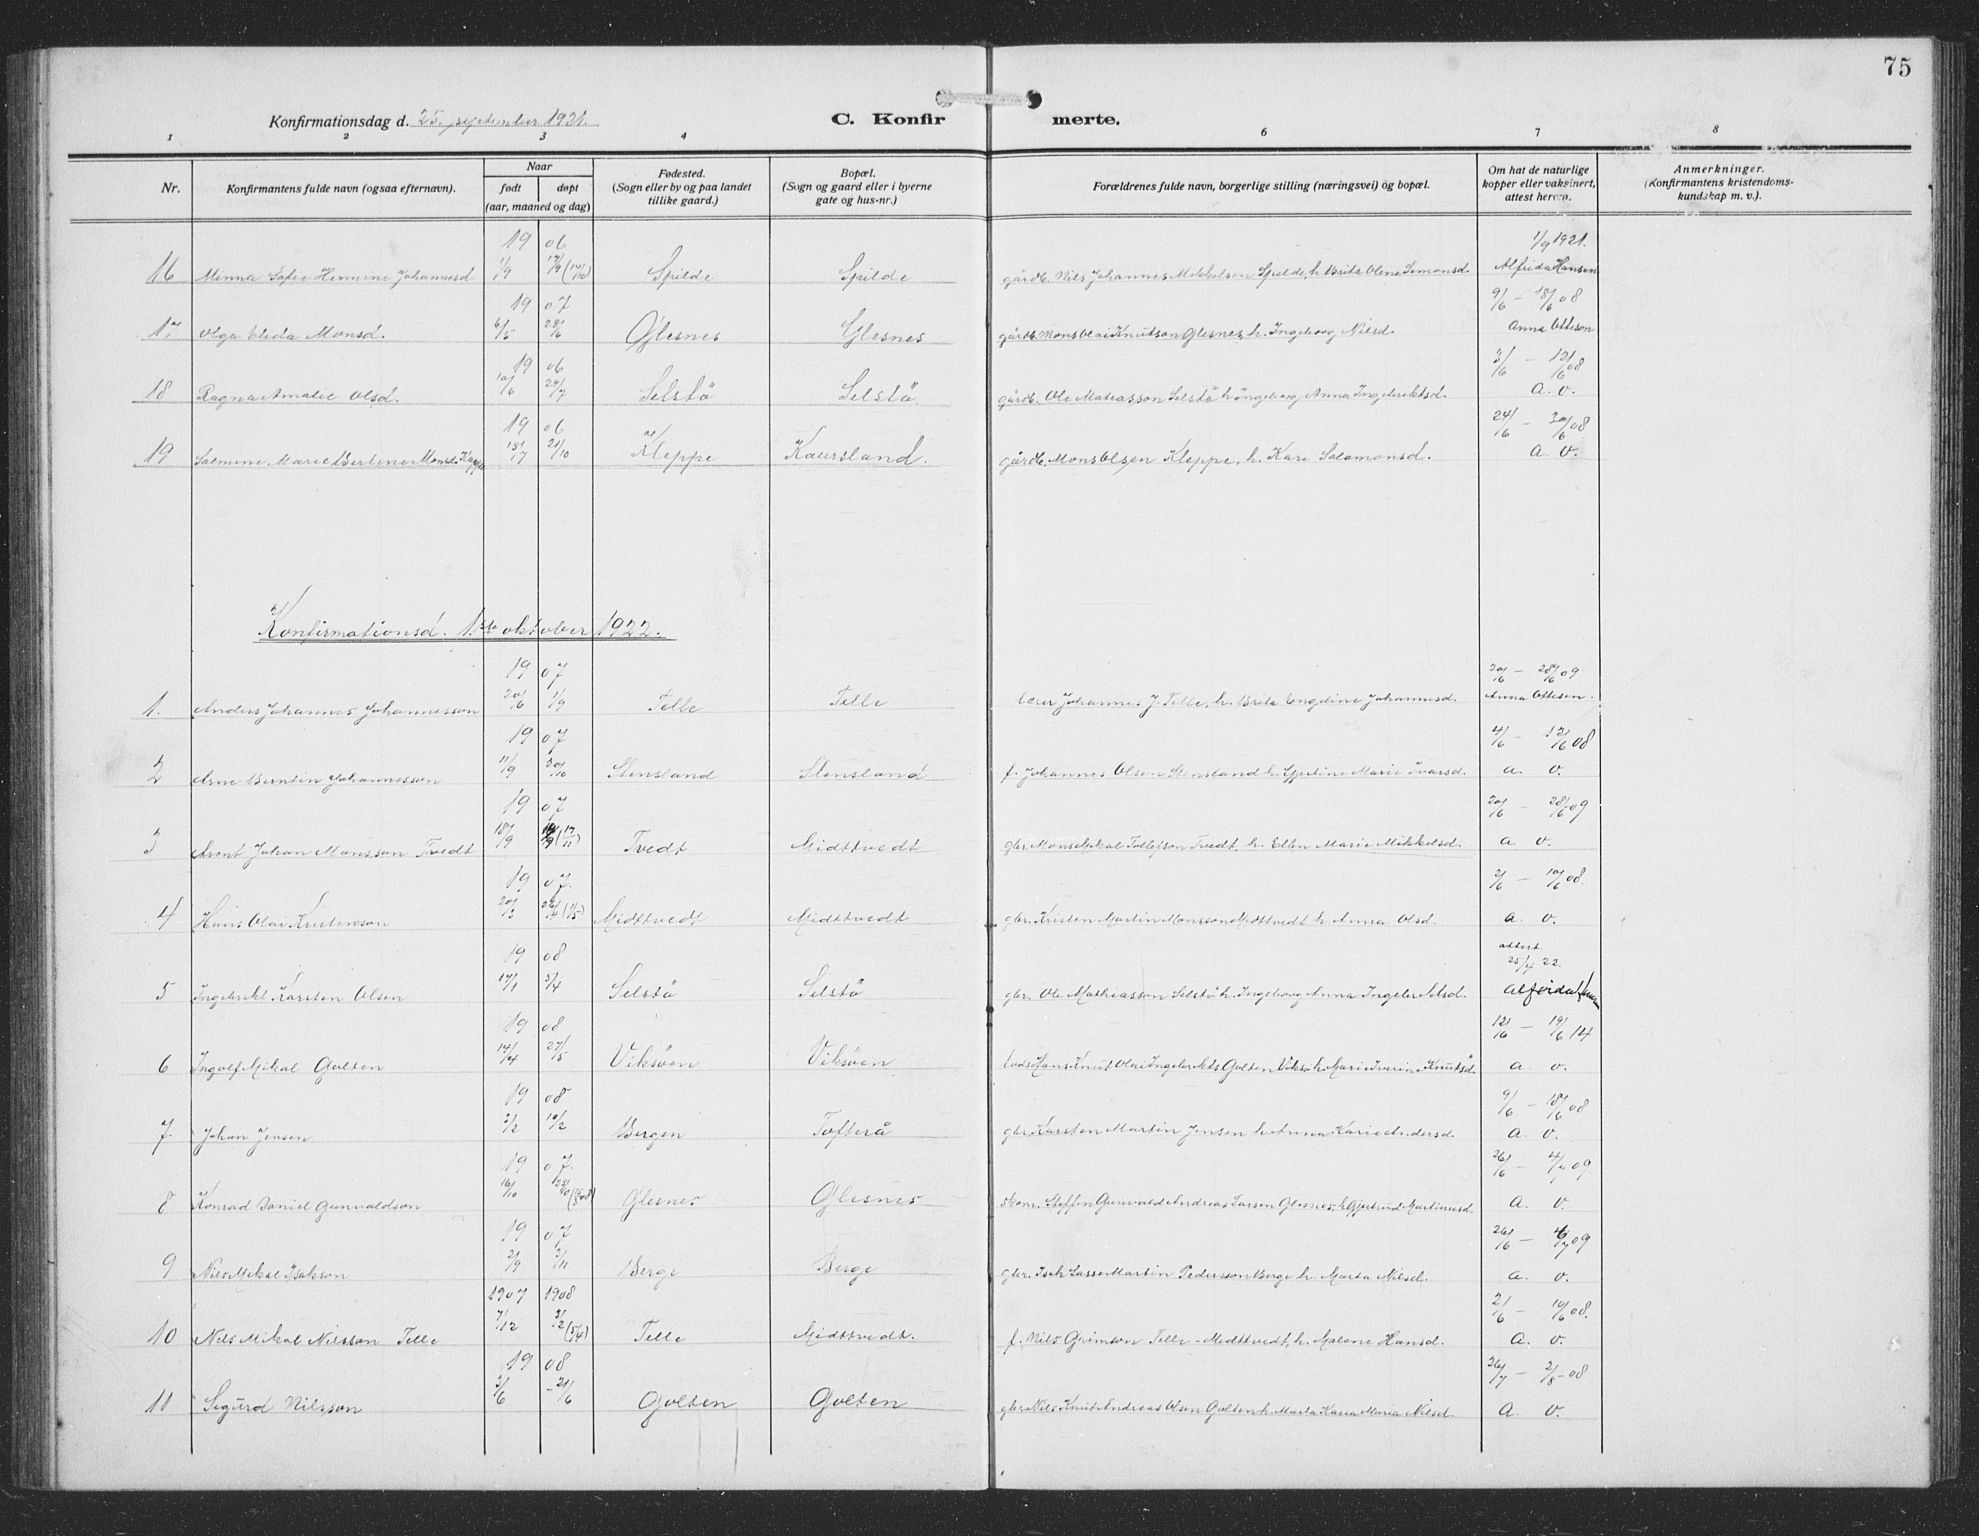 75
Konfirmationsdag d. 25. september 1921.
C. Konfirmerte.
1 2 3 4 6 7 8
Nr. Konfirmantens fulde navn (ogsaa efternavn). Naar født døpt (aar, maaned og dag) Fødested. (Sogn eller by og paa landet tillike gaard.) Bopæl. (Sogn og gaard eller i byerne gate og hus-nr.) Forældrenes fulde navn, borgerlige stilling (næringsvei) og bopæl. Om hat de naturlige kopper eller vaksinert, attest herom. Anmerkninger. (Konfirmantens kristendoms-kundskap m. v.).
19 06 1/9 1921.
16 Minna Sofie Hermine Johannesd 1/9 Spilde Spilde gårdb. Nils Johannes Mikkelsen Spilde, h. Brita Oline Simonsd. Alfrida Hansen
19 07 9/6 – 18/6 08
17 Olga Elida Monsd. 6/5 28/6 Glesnes Glesnes gårdb. Mons Olai Knutson Glesnes, h. Ingeborg Nilsd. Anna Ottesen
19 06 3/6 – 12/6 08
18 Ragna Amalie Olsd. 10/6 29/7 Selstö Selstö gårdb. Ole Matiasson Selstö h. Ingeborg Anna Ingebriktsd. a. v.
19 06 24/6 – 30/6 08
19 Salmine Marie Bertine Monsd. Kleppe 21/10 Kleppe Kaursland. gårdb. Mons Olsen Kleppe, h. Kari Salamonsd. a. v.
Konfirmationsd. 1.ste oktober 1922.
19 07 20/6 – 28/6 09
1. Anders Johannes Johannesson 20/6 1/9 Telle Telle lærer Johannes J. Telle, h. Brita Engeline Johannesd. Anna Ottesen.
19 07 4/6 – 12/6 08
2 Arne Berntin Johannesson 11/9 20/10 Stensland Stensland f. Johannes Olsen Stensland h. Gjertine Marie Ivarsd. a. v.
19 07 20/6 – 28/6 09
3 Arent Johan Monsson Tvedt 18/9 (17/11) Tvedt Midttvedt gbr. Mons Mikal Tollefson Tvedt, h. Ellen Marie Mikkelsd. a. v.
19 07. 2/6 – 10/6 08.
4 Hans Olai Kristenson 20/3 Midttvedt Midttvedt gbr. Kristen Martin Monsson Midttvedt h. Anna Olsd. a. v.
19 08 attest. 25/4 22.
5 Ingebrikt Karsten Olsen 17/1 5/4 Selstö Selstö gbr. Ole Mathiasson Selstö h. Ingeborg Anna Alfrida Hansen
19 08 12/6 – 19/6 14
6 Ingolf Mikal Golten 14/4 27/5 Viksöen Viksöen lods Hans Knut Olai Ingebrikts Golten Viksö h. Marie Knutsd. a. v.
19 08 9/6 – 18/6 08
7. Johan Jensen 2/2 Bergen Tofterå gbr. Karsten Martin Jensen h. Anna Karie Andersd. a. v.
19 07. 26/6 – 4/7 09
8 Konrad Daniel Gunvaldson 16/10 Glesnes Glesnes skom. Steffen Gunvald Andreas Larsen Glesnes, h. Gjertrud Martinusd. a. v.
19 07 26/6 – 4/7 09
9 Nils Mikal Isakson 2/9 3/11 Berge Berge gbr. Isak Lasse Martin Pederson Berge h. Marta Nilsd. a. v.
1907 1908 2/6 – 10/6 08.
10 Nils Mikal Nilsson Telle 7/12 Telle Midttvedt. f. Nils Grimson Telle – Midttvedt, h. Malene Hansd. a. v.
19 08 26/7 – 2/8 08
11 Sigurd Nilsson 3/6 21/6 Golten Golten gbr. Nils Knut Andreas Olsen Golten h. Marta Karia Maria Nilsd. a. v.